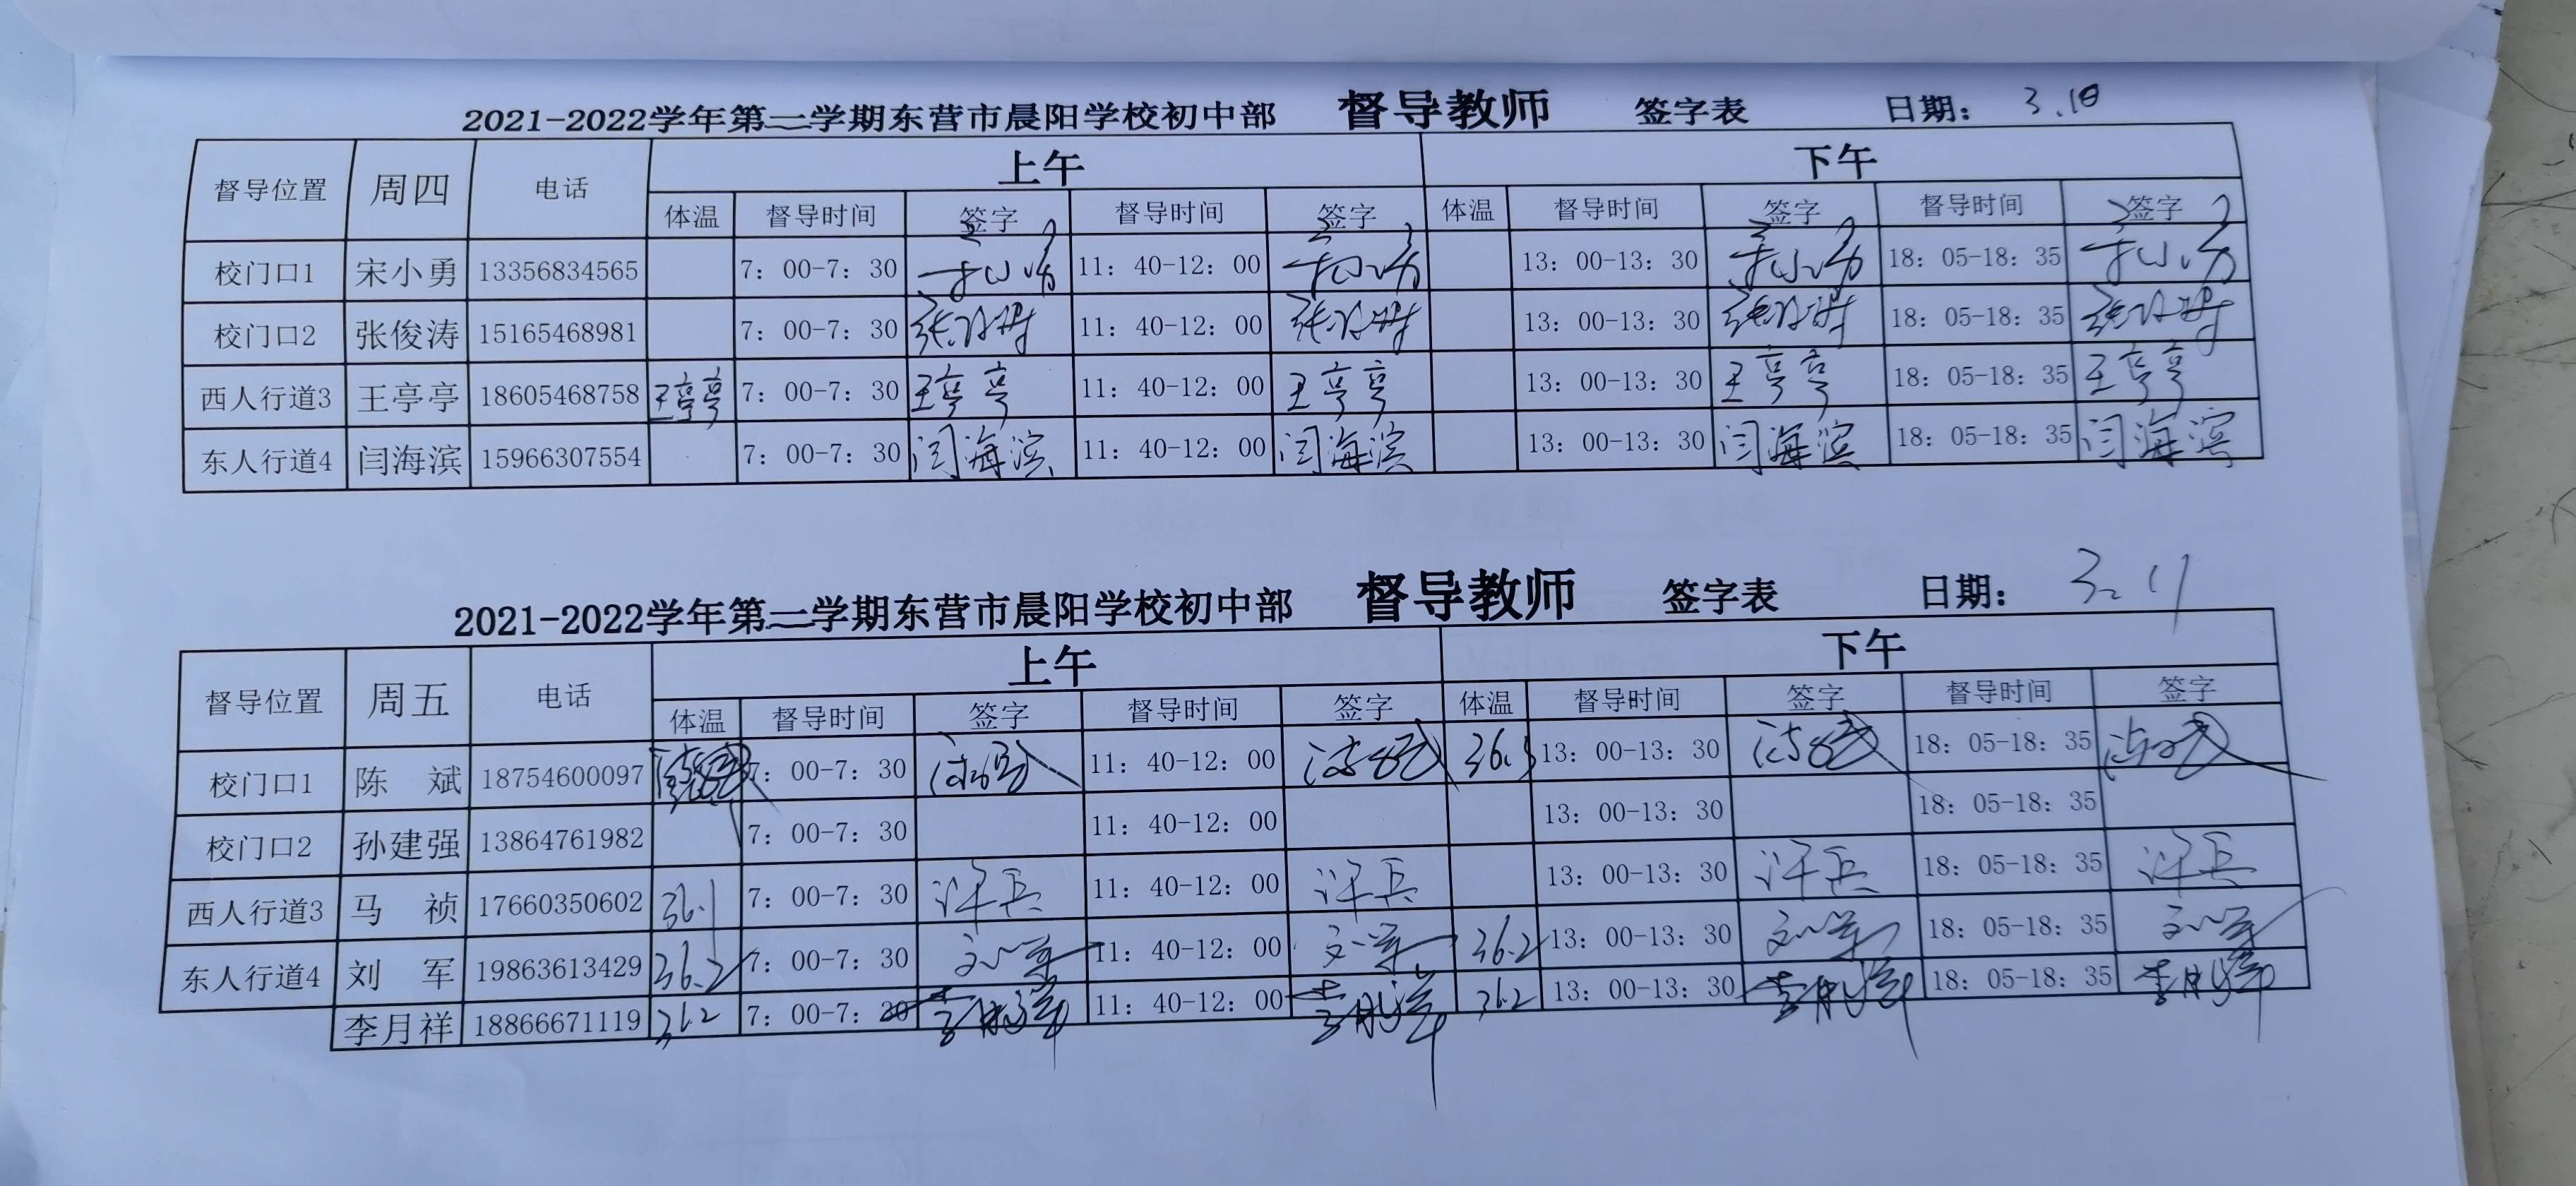 2021-2022学年第二学期东营市晨阳学校初中部 督导教师 签字表 日期： 3.10
督导位置 周四 电话 上午 下午
体温 督导时间 签字 督导时间 签字 体温 督导时间 签字 督导时间 签字
校门口1 宋小勇 13356834565 7：00-7：30 宋小勇 11：40-12：00 宋小勇 13：00-13：30 宋小勇 18：05-18：35 宋小勇
校门口2 张俊涛 15165468981 7：00-7：30 张俊涛 11：40-12：00 张俊涛 13：00-13：30 张俊涛 18：05-18：35 张俊涛
西人行道3 王亭亭 18605468758 王亭亭 7：00-7：30 王亭亭 11：40-12：00 王亭亭 13：00-13：30 王亭亭 18：05-18：35 王亭亭
东人行道4 闫海滨 15966307554 7：00-7：30 闫海滨 11：40-12：00 闫海滨 13：00-13：30 闫海滨 18：05-18：35 闫海滨
2021-2022学年第二学期东营市晨阳学校初中部 督导教师 签字表 日期： 3.11
督导位置 周五 电话 上午 下午
体温 督导时间 签字 督导时间 签字 体温 督导时间 签字 督导时间 签字
校门口1 陈 斌 18754600097 7：00-7：30 11：40-12：00 36.3 13：00-13：30 18：05-18：35
校门口2 孙建强 13864761982 7：00-7：30 11：40-12：00 13：00-13：30 18：05-18：35
西人行道3 马 祯 17660350602 36.1 7：00-7：30 许兵 11：40-12：00 许兵 13：00-13：30 许兵 18：05-18：35 许兵
东人行道4 刘 军 19863613429 36.2 7：00-7：30 刘军 11：40-12：00 刘军 36.2 13：00-13：30 刘军 18：05-18：35 刘军
李月祥 18866671119 36.2 7：00-7：30 李月祥 11：40-12：00 李月祥 36.2 13：00-13：30 李月祥 18：05-18：35 李月祥